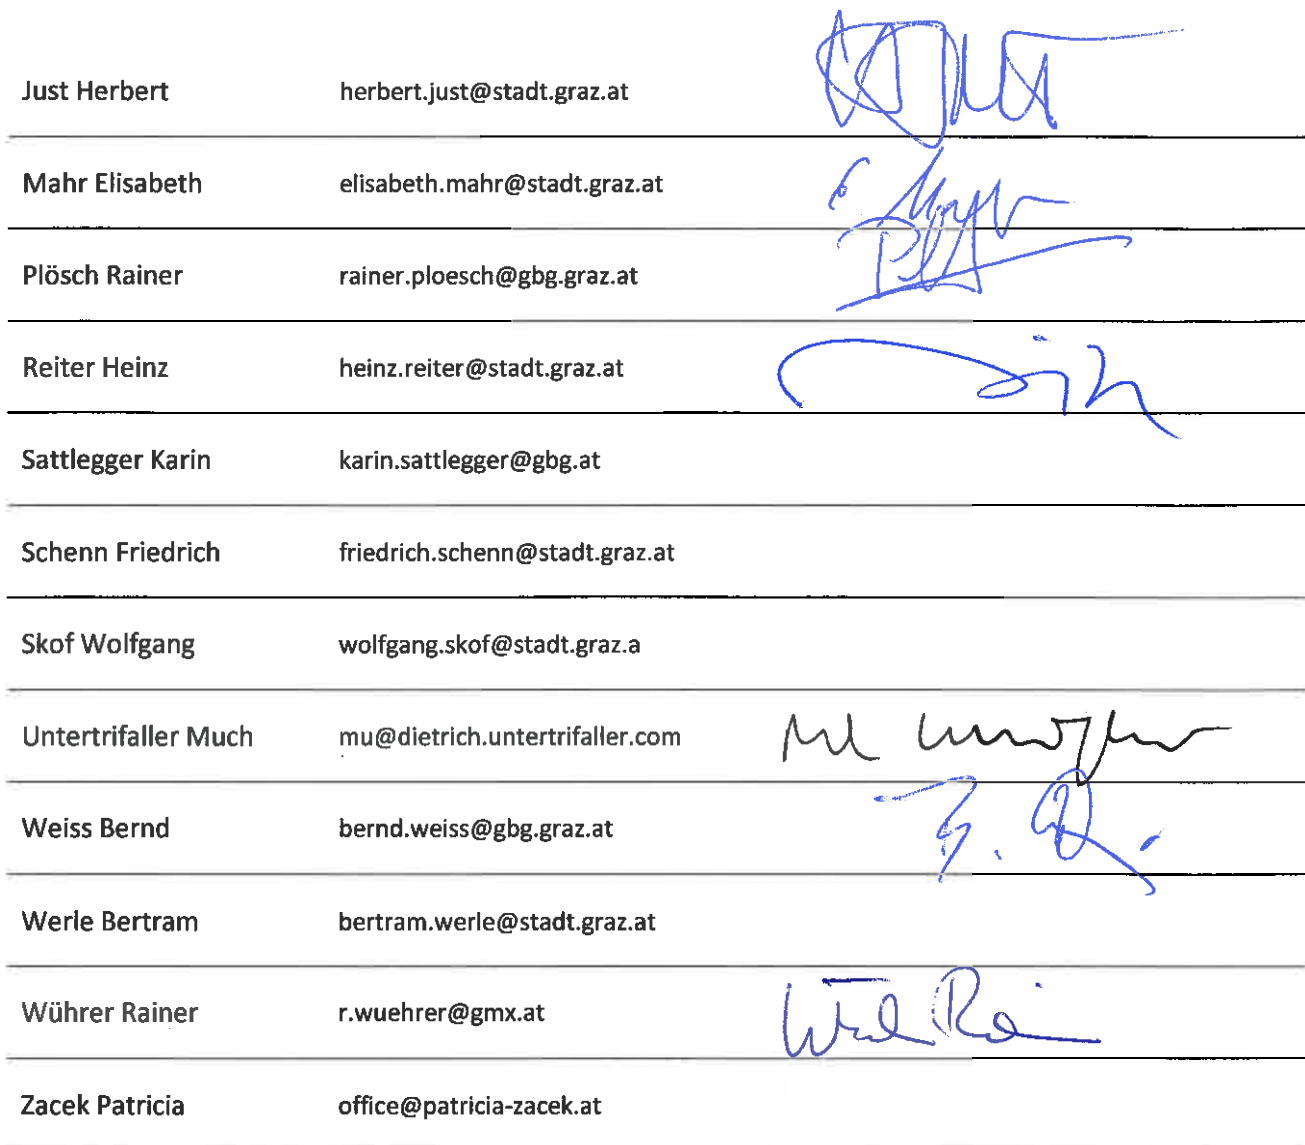 Just Herbert herbert.just@stadt.graz.at
Mahr Elisabeth elisabeth.mahr@stadt.graz.at
Plösch Rainer rainer.ploesch@gbg.graz.at
Reiter Heinz heinz.reiter@stadt.graz.at
Sattlegger Karin karin.sattlegger@gbg.at
Schenn Friedrich friedrich.schenn@stadt.graz.at
Skof Wolfgang wolfgang.skof@stadt.graz.a
Untertrifaller Much mu@dietrich.untertrifaller.com
Weiss Bernd bernd.weiss@gbg.graz.at
Werle Bertram bertram.werle@stadt.graz.at
Wührer Rainer r.wuehrer@gmx.at
Zacek Patricia office@patricia-zacek.at